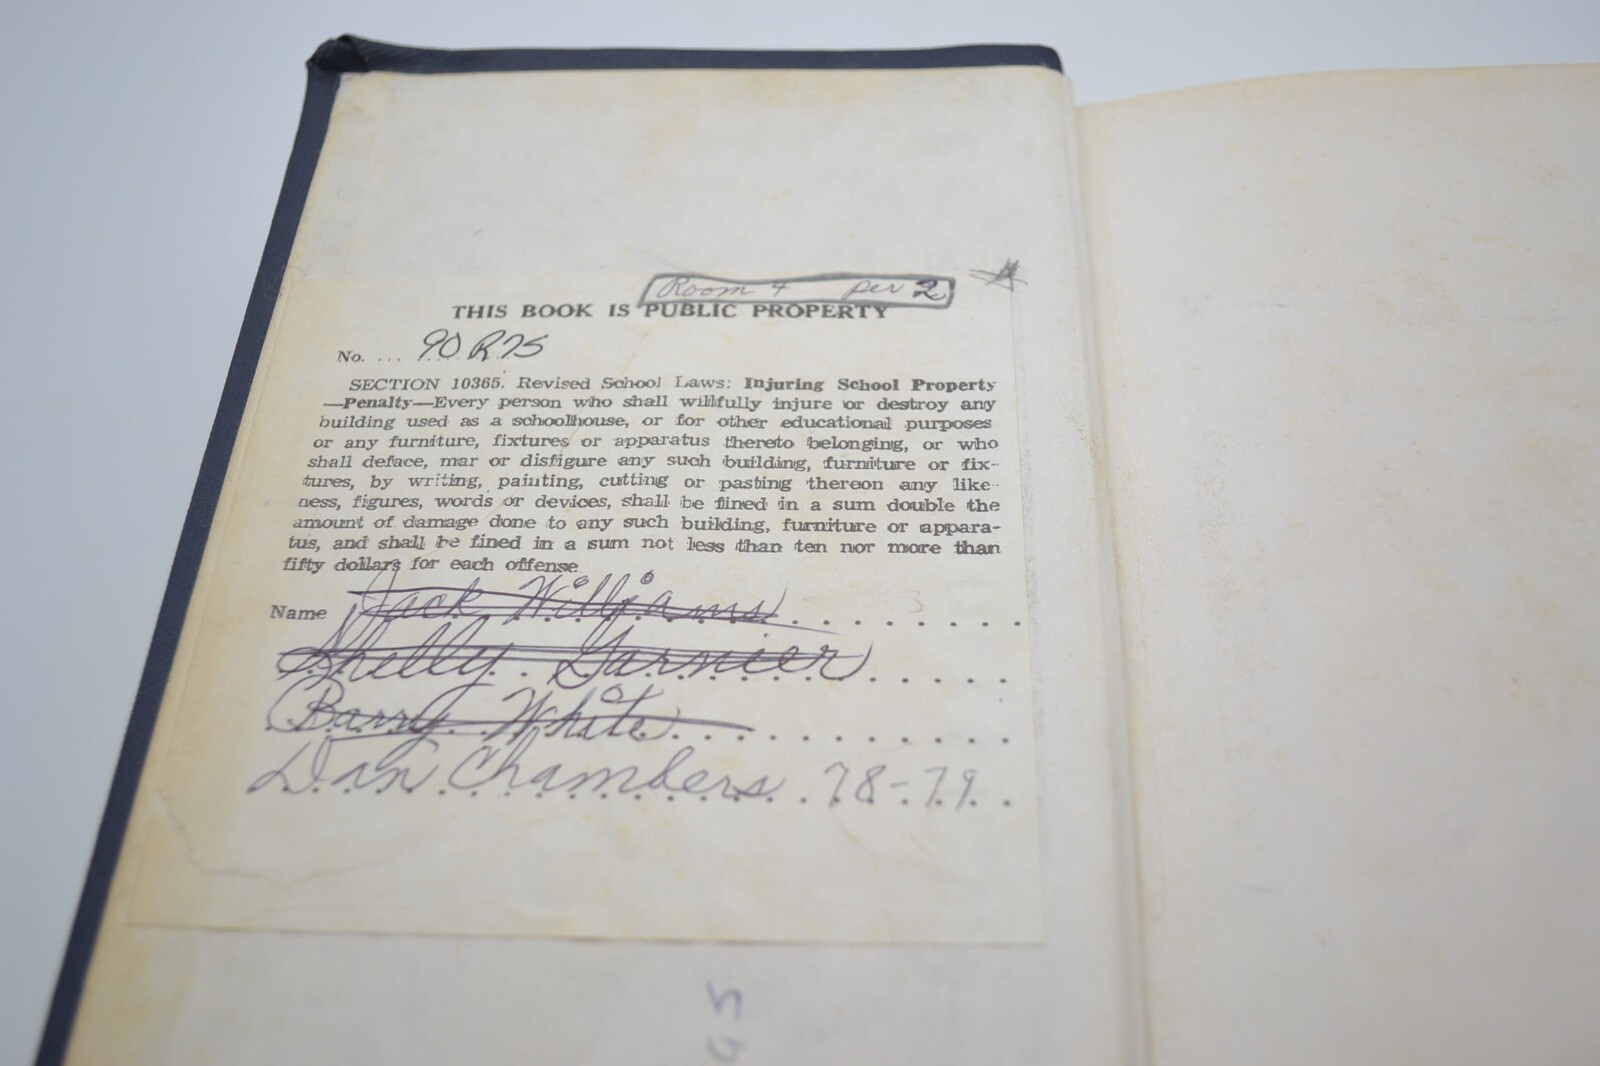 Room 4 per 2
THIS BOOK IS PUBLIC PROPERTY
No. ... 90 R 75
SECTION 10365. Revised School Laws: Injuring School Property
—Penalty—Every person who shall willfully injure or destroy any
building used as a schoolhouse, or for other educational purposes
or any furniture, fixtures or apparatus thereto belonging, or who
shall deface, mar or disfigure any such building, furniture or fix-
tures, by writing, painting, cutting or pasting thereon any like-
ness, figures, words or devices, shall be fined in a sum double the
amount of damage done to any such building, furniture or appara-
tus, and shall be fined in a sum not less than ten nor more than
fifty dollars for each offense
Name Jack Williams
Shelly Garnier
Barry White
Dan Chambers 78-79